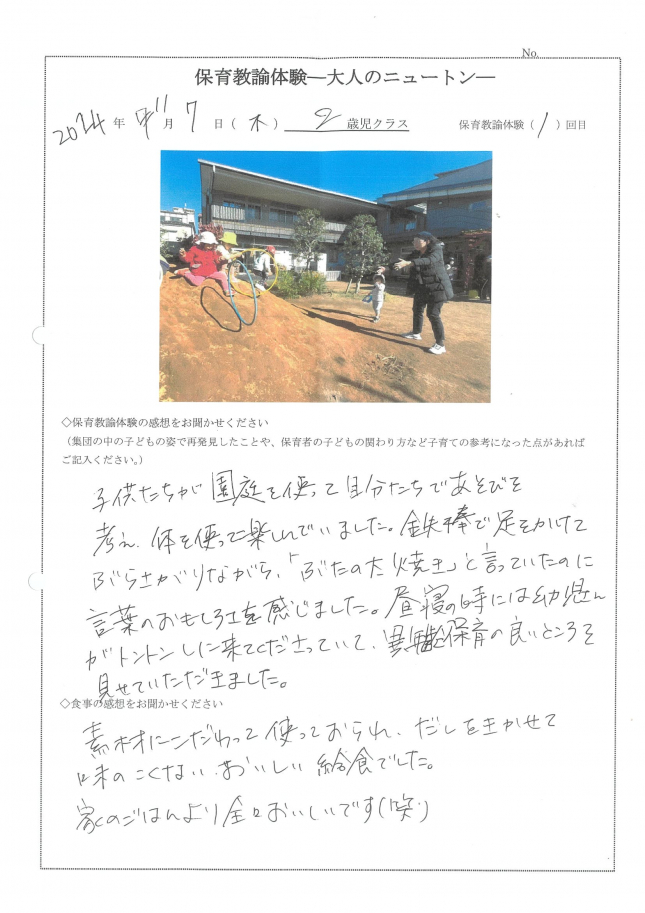 No.
保育教諭体験―大人のニュートン―
2024年 11月 7日(木) 2歳児クラス 保育教諭体験(1)回目
◇保育教諭体験の感想をお聞かせください
(集団の中の子どもの姿で再発見したことや、保育者の子どもの関わり方など子育ての参考になった点があれば
ご記入ください。)
子供たちが園庭を使って自分たちであそびを
考え、体を使って楽しんでいました。鉄棒で足をかけて
ぶらさがりながら、「ぶたの丸焼き」と言っていたのに
言葉のおもしろさを感じました。昼寝の時には幼児さん
がトントンしに来てくださっていて、異年齢保育の良いところを
見せていただきました。
◇食事の感想をお聞かせください
素材にこだわって使っておられ、だしをきかせて
味のこくない、おいしい給食でした。
家のごはんより全々おいしいです(笑)